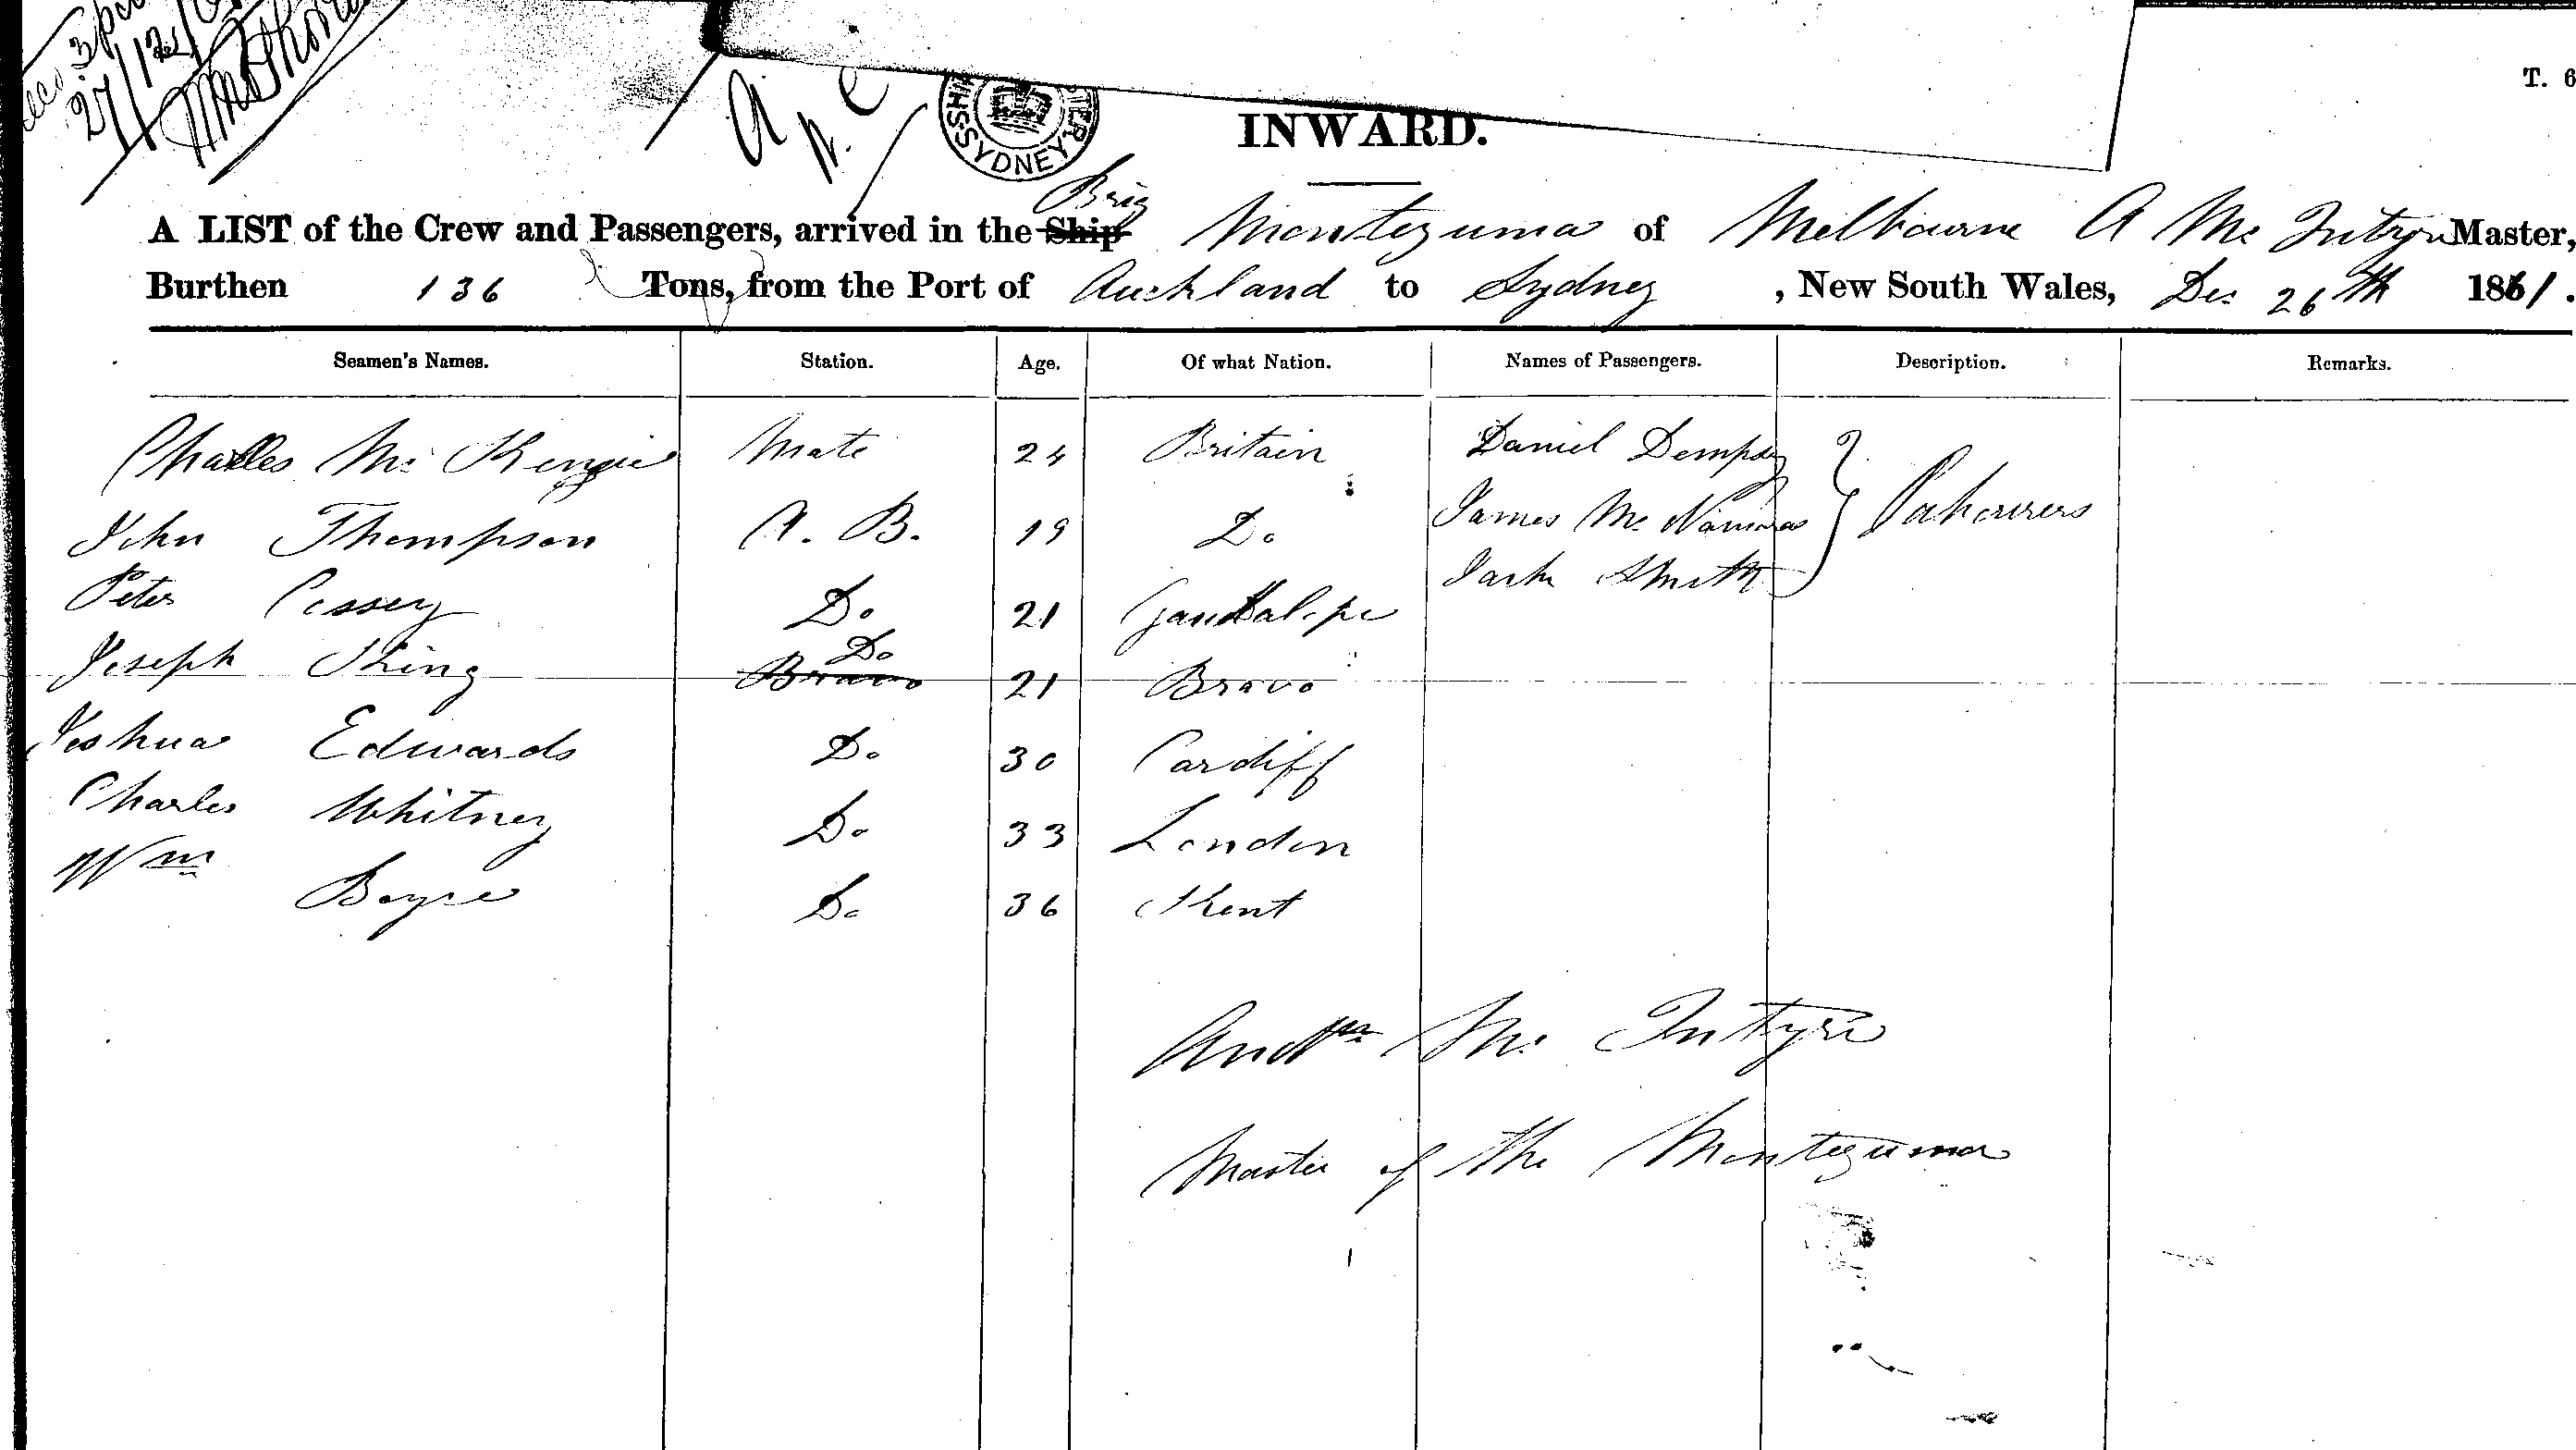 27/12/6
A.
N. C
SYDNEY
T. 6
INWARD.
Brig
A LIST of the Crew and Passengers, arrived in the Ship Montezuma of Melbourne A Mc Intyre Master,
Burthen 136 Tons, from the Port of Auckland to Sydney , New South Wales, Dec 26th 1861.
Seamen's Names. Station. Age. Of what Nation. Names of Passengers. Description. Remarks.
Charles Mc Kenzie Mate 24 Britain Daniel Dempsey
John Thompson A. B. 19 Do James Mc Namara
Peter Cossey Do 21 Jack Smith
Do
Joseph King Bravo 21 Bravo
Joshua Edwards Do 30 Cardiff
Charles Whitney Do 33 London
Wm Boyce Do 36 Kent
Mc Intyre
Master of the Montezuma